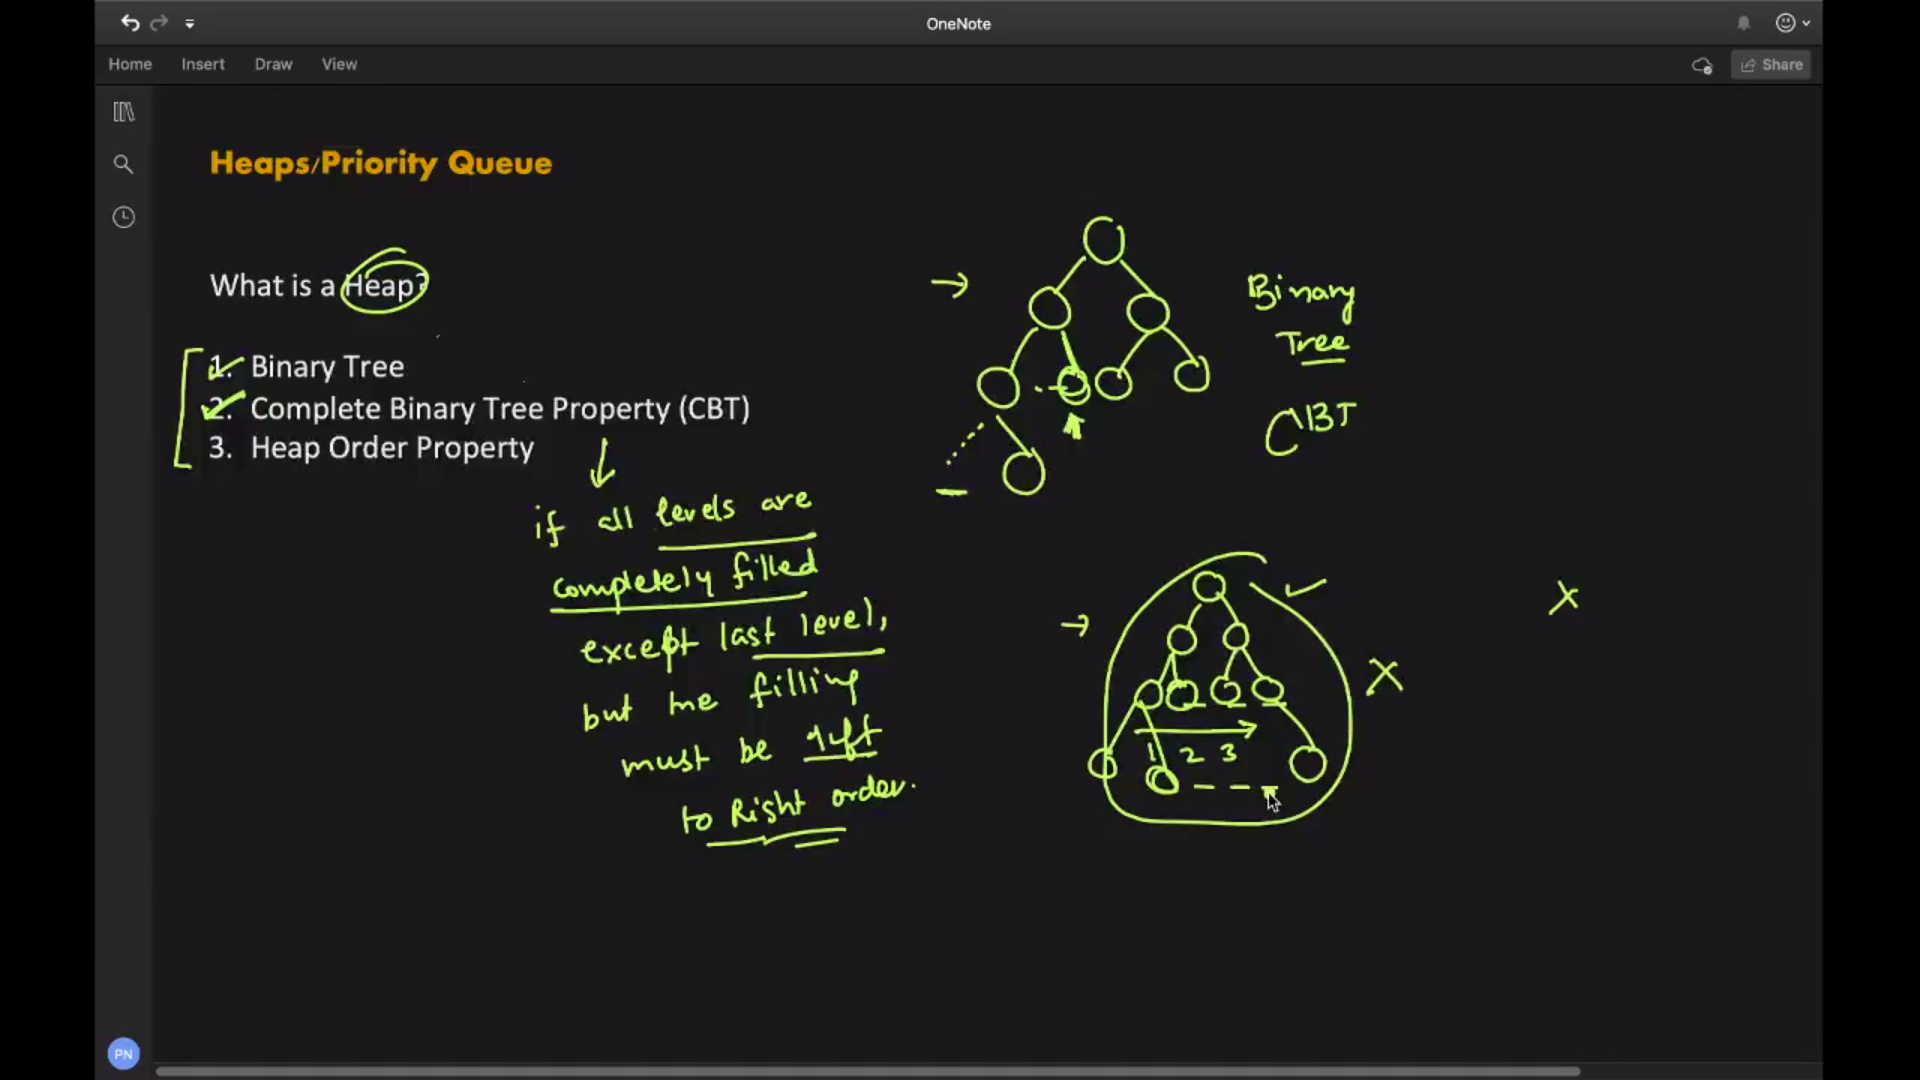 OneNote
Home Insert Draw View
Share
Heaps/Priority Queue
What is a Heap?
1. Binary Tree
2. Complete Binary Tree Property (CBT)
3. Heap Order Property
if all levels are
completely filled
except last level,
but the filling
must be left
to Right order.
Binary
Tree
CBT
X
X
1 2 3
PN